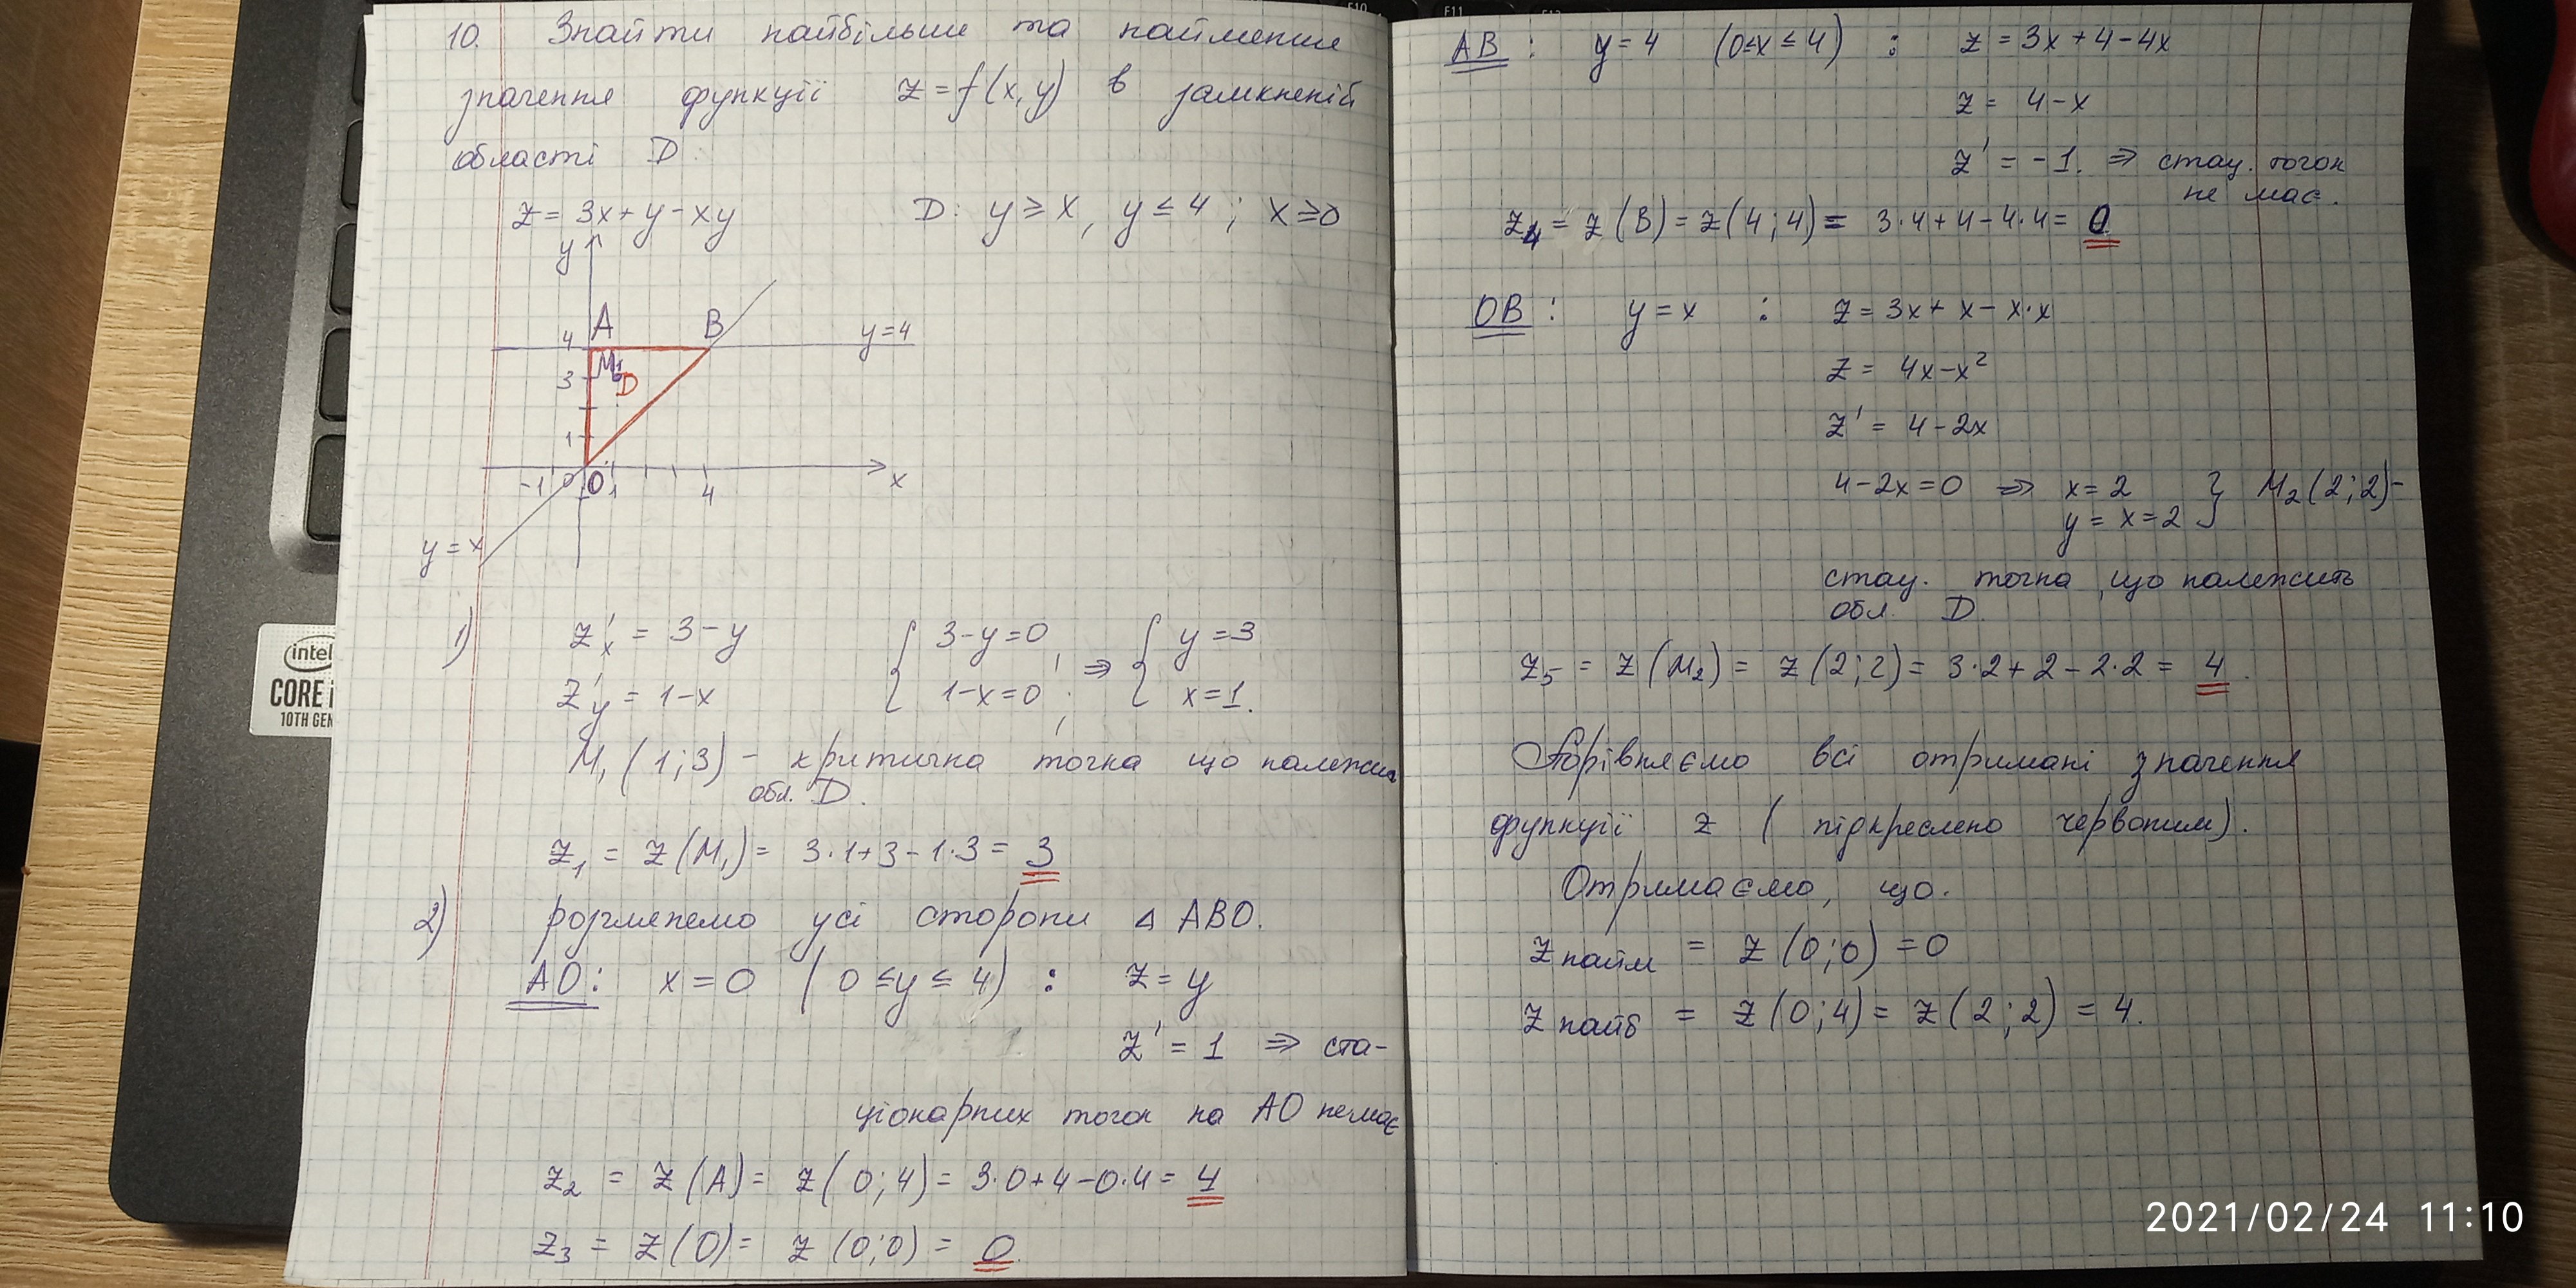 10. Знайти найбільше та найменше
значення функції z = f(x,y) в замкненій
області D:
z = 3x + y - xy D: y ≥ x, y ≤ 4; x ≥ 0
y
A B
4 y=4
M₁
3 D
1
-1 0 O 1 4 x
y = x
1) z'x = 3 - y { 3-y=0, ⇒ { y=3
z'y = 1-x 1-x=0; x=1.
M₁ (1;3) - критична точка що належить
обл. D.
z₁ = z(M₁) = 3·1+3-1·3 = 3
2) розглянемо усі сторони △ ABO.
AO: x=0 (0 ≤ y ≤ 4) : z = y
z' = 1 ⇒ ста-
ціонарних точок на AO немає
z₂ = z(A) = z(0;4) = 3·0+4-0·4 = 4
z₃ = z(O) = z(0;0) = 0
AB : y=4 (0≤x≤4) : z = 3x+4-4x
z = 4-x
z' = -1. ⇒ стац. точок
не має.
z₄ = z(B) = z(4;4) = 3·4+4-4·4 = 0
OB : y = x : z = 3x + x - x·x
z = 4x-x²
z' = 4-2x
4-2x=0 ⇒ x=2 } M₂(2;2)-
y = x=2
стац. точка, що належить
обл. D
z₅ = z(M₂) = z(2;2) = 3·2+2-2·2 = 4.
Порівняємо всі отримані значення
функції z (підкреслено червоним).
Отримаємо, що.
z найм = z(0;0) = 0
z найб = z(0;4) = z(2;2) = 4.
intel
CORE i
10TH GEN
F10
F11
2021/02/24 11:10